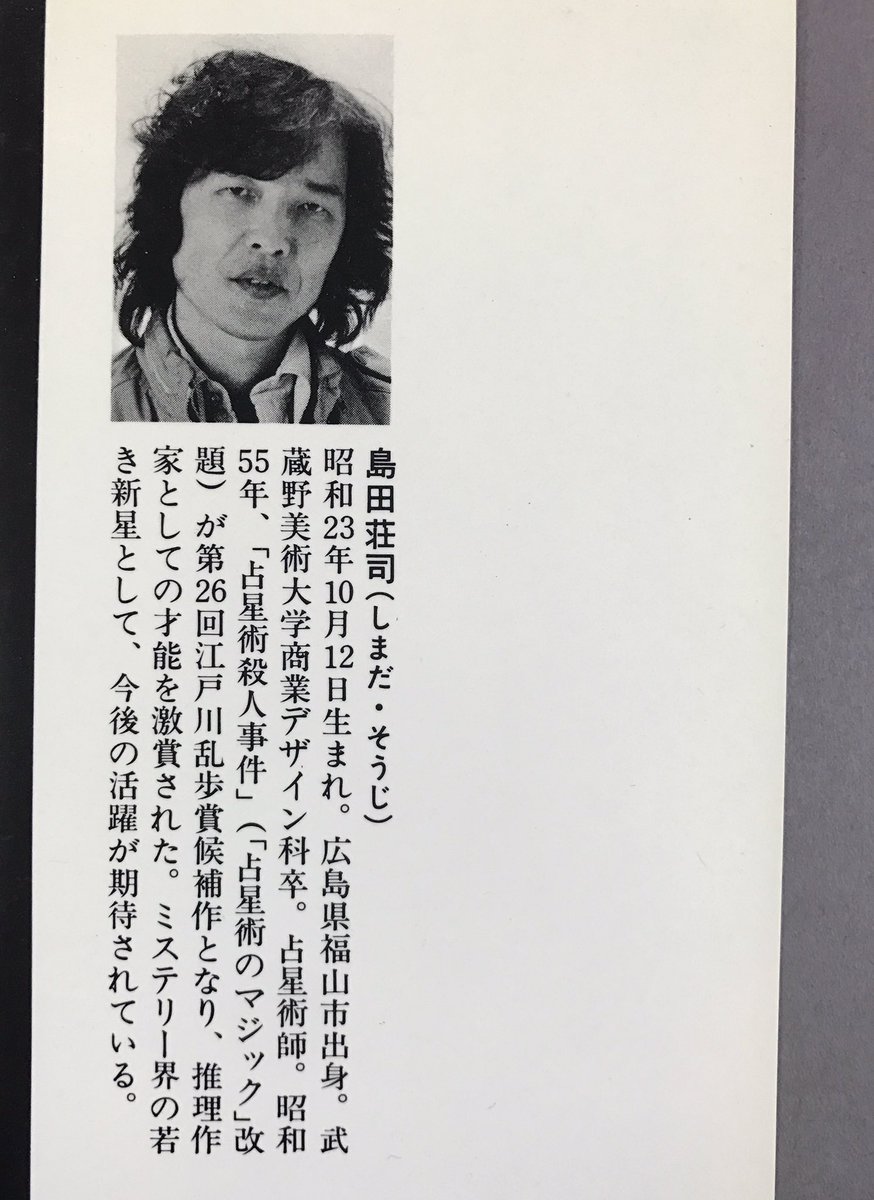 島田荘司(しまだ・そうじ)
昭和23年10月12日生まれ。広島県福山市出身。武
蔵野美術大学商業デザイン科卒。占星術師。昭和
55年、「占星術殺人事件」(「占星術のマジック」改
題)が第26回江戸川乱歩賞候補作となり、推理作
家としての才能を激賞された。ミステリー界の若
き新星として、今後の活躍が期待されている。